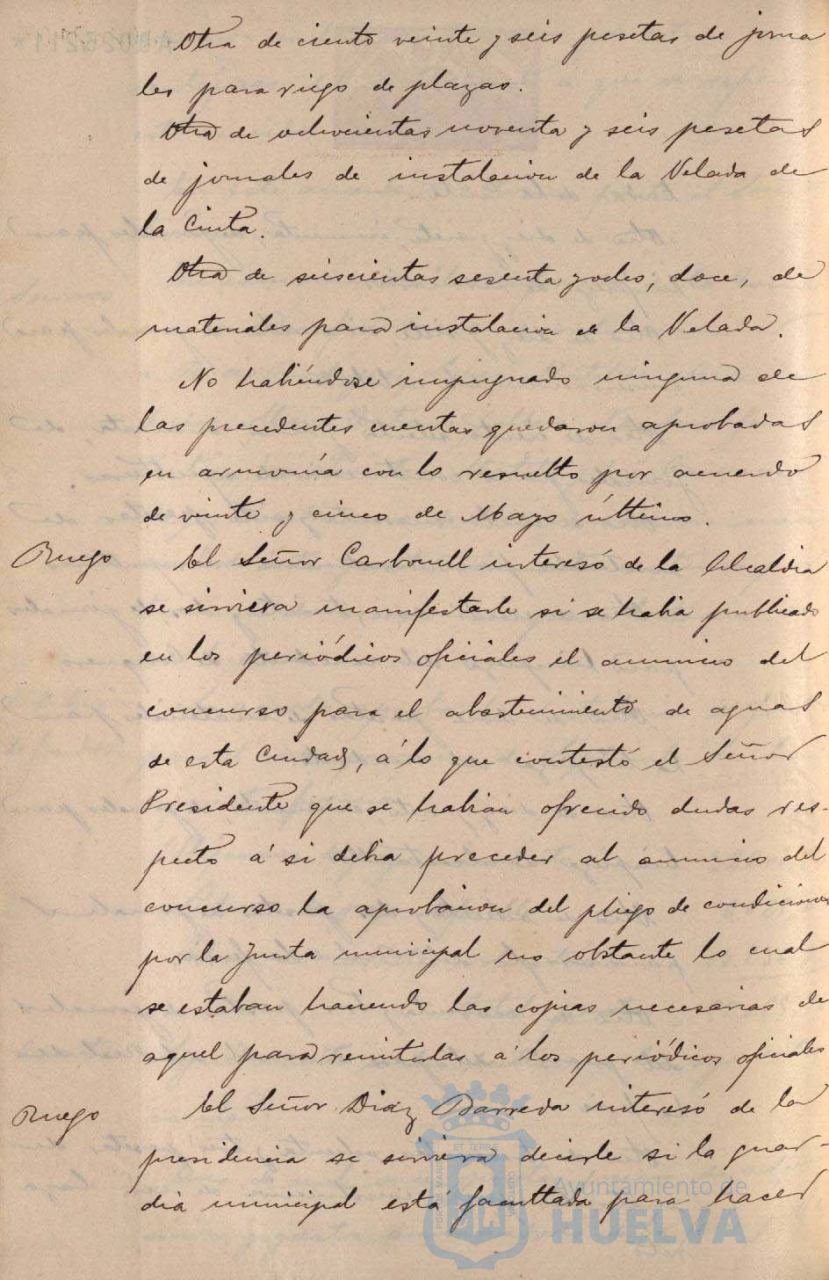 Otra de ciento veinte y seis pesetas de jorna
les para riego de plazas.
Otra de ochocientas noventa y seis pesetas
de jornales de instalacion de la Velada de
la Cinta.
Otra de seiscientas sesenta y ocho, doce, de
materiales para instalacion de la Velada.
No habiéndose impugnado ninguna de
las precedentes cuentas quedaron aprobadas
en armonía con lo resuelto por acuerdo
de veinte y cinco de Mayo último.
Ruego
El Señor Carbonell interesó de la Alcaldia
se sirviera manifestarle si se habia publicado
en los periódicos oficiales el anuncio del
concurso para el abastecimiento de aguas
de esta Ciudad, á lo que contestó el Señor
Presidente que se habian ofrecido dudas res-
pecto á si debia preceder al anuncio del
concurso la aprobacion del pliego de condiciones
por la Junta municipal no obstante lo cual
se estaban haciendo las copias necesarias de
aquel para remitirlas á los periódicos oficiales
Ruego
El Señor Diaz Barreda interesó de la
presidencia se sirviera decirle si la guar-
dia municipal está facultada para hacer
Ayuntamiento de
HUELVA